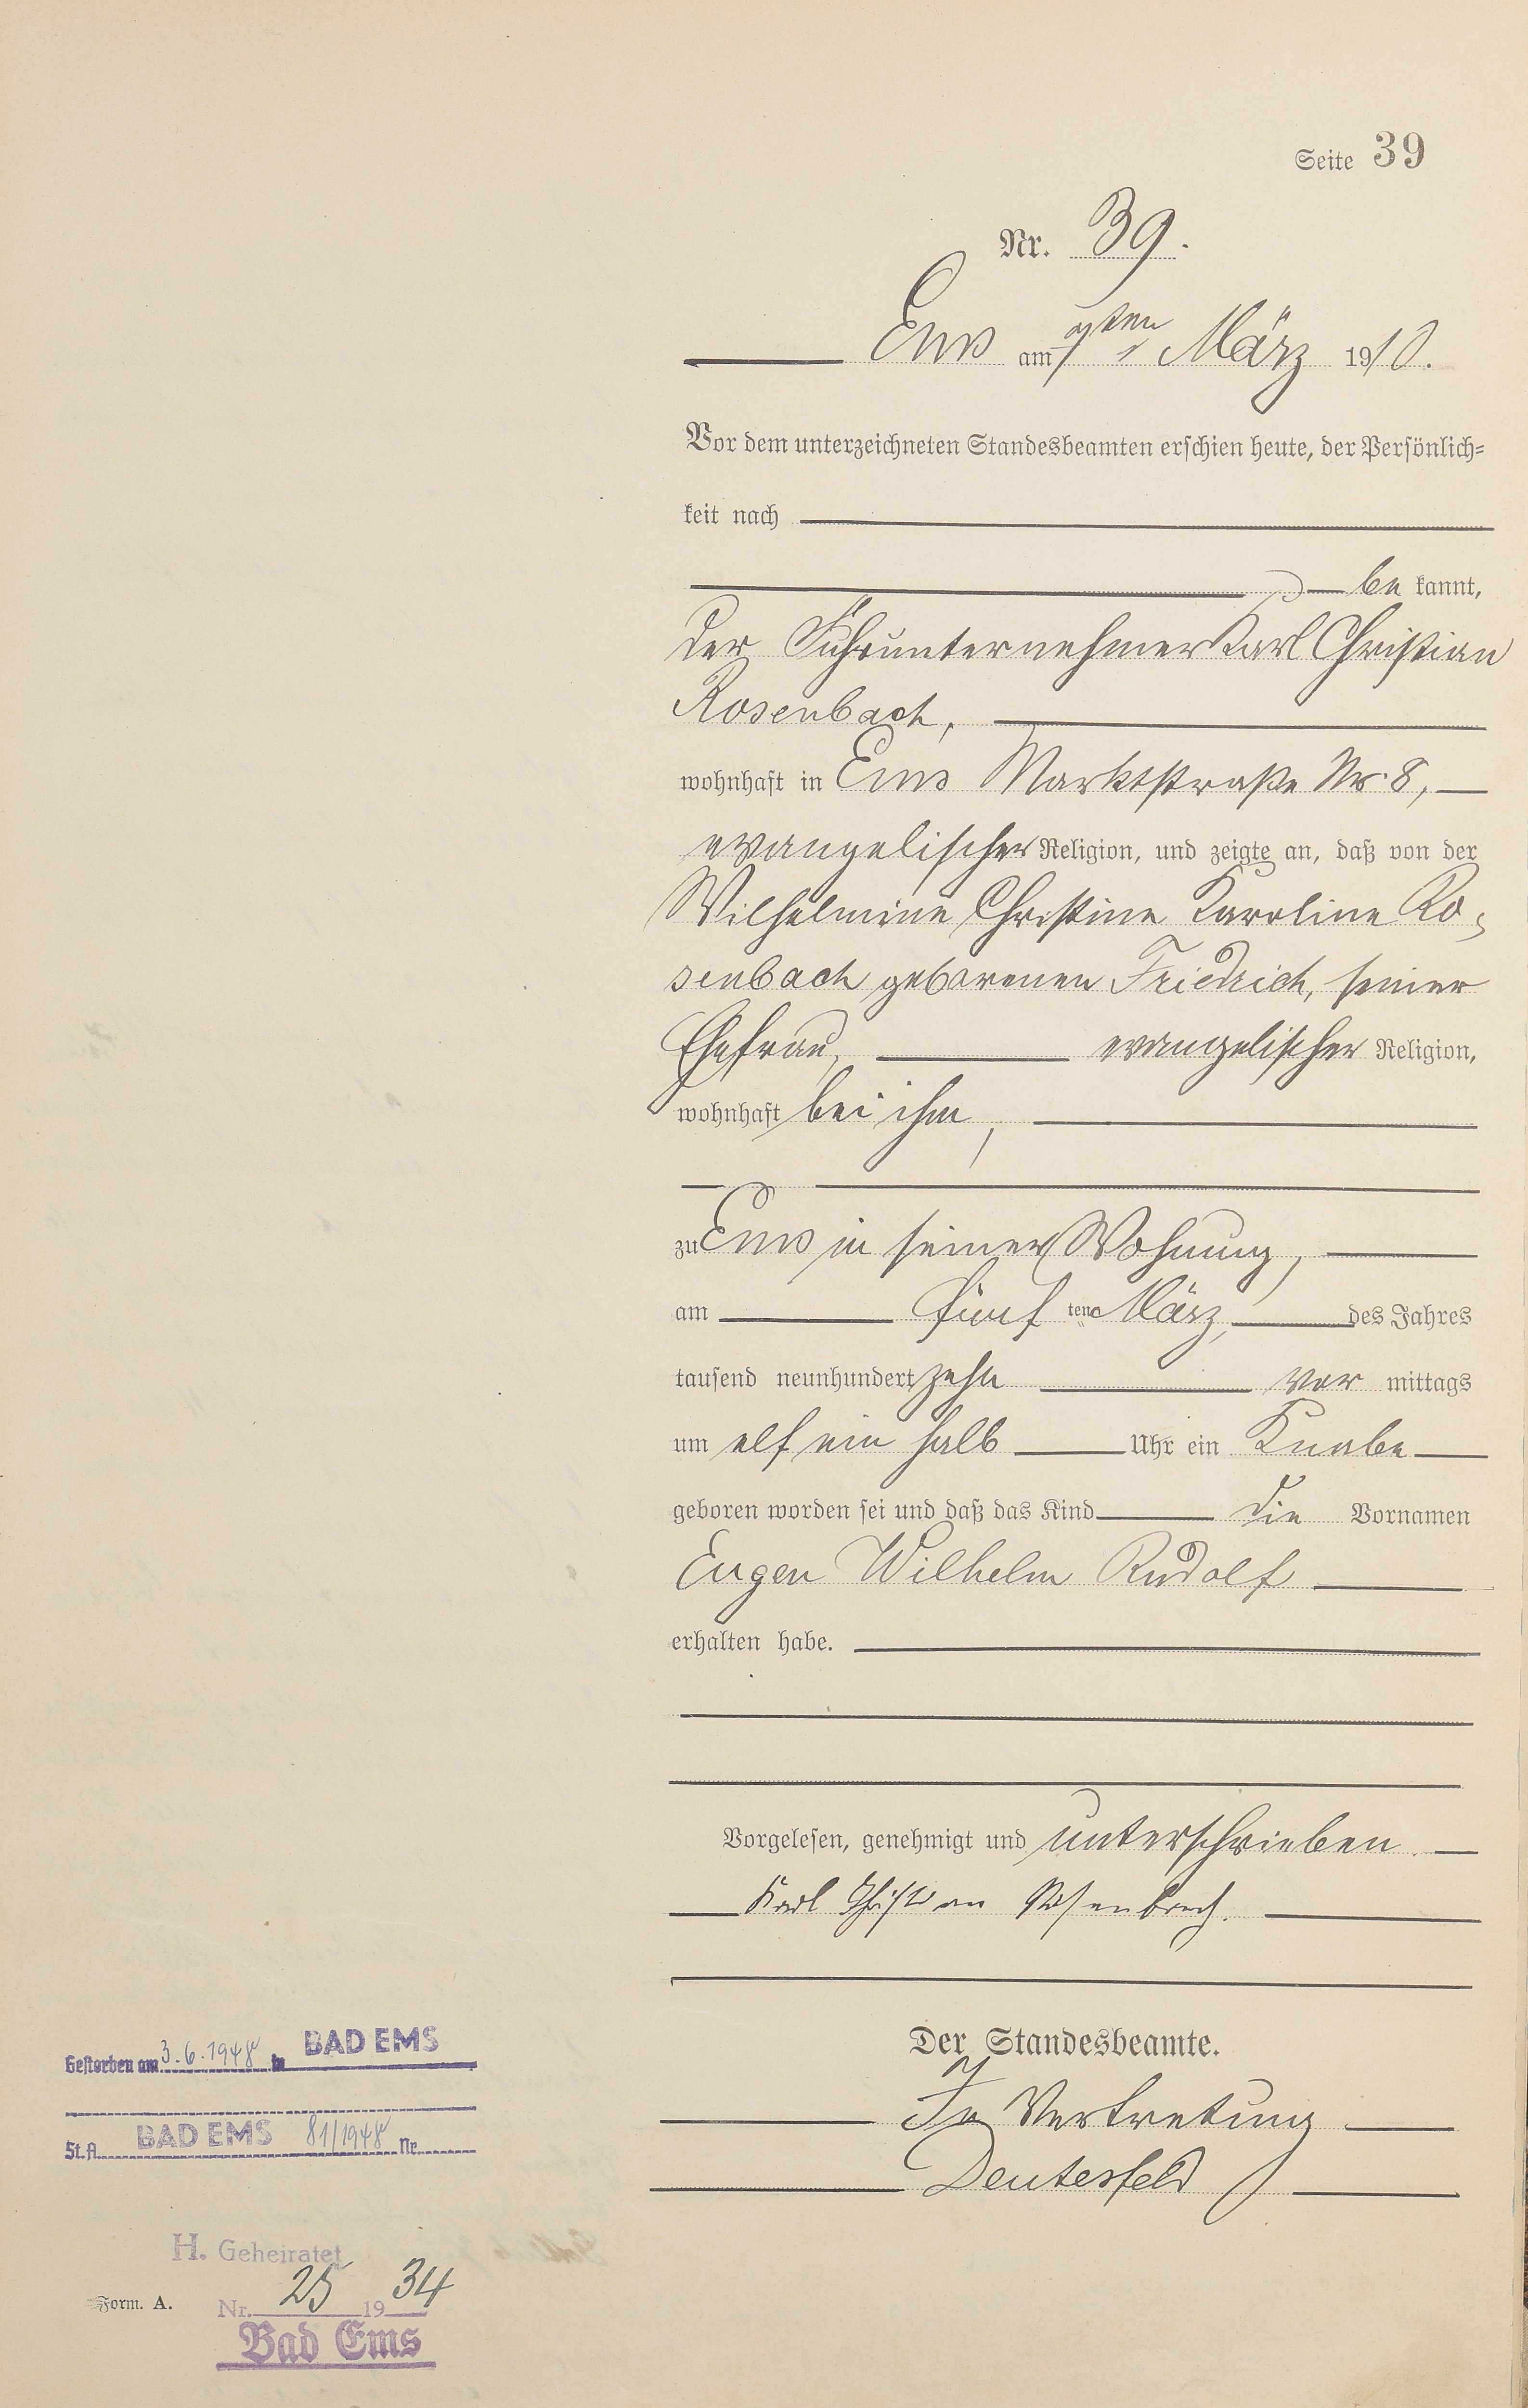 Seite 39
Nr. 39.
Ems am 7ten März 1910.
Vor dem unterzeichneten Standesbeamten erschien heute, der Persönlich-
keit nach
be kannt,
der Fuhrunternehmer Karl Christian
Rosenbach,
wohnhaft in Ems Marktstraße Nr. 8,
evangelischer Religion, und zeigte an, daß von der
Wilhelmine Christine Karoline Ro-
senbach geborenen Friedrich, seiner
Ehefrau, evangelischer Religion,
wohnhaft bei ihm,
zu Ems in seiner Wohnung,
am fünf ten März, des Jahres
tausend neunhundert zehn vor mittags
um elf ein halb Uhr ein Knabe
geboren worden sei und daß das Kind die Vornamen
Eugen Wilhelm Rudolf
erhalten habe.
Vorgelesen, genehmigt und unterschrieben.
Karl Christian Rosenbach.
Der Standesbeamte.
In Vertretung
Deutesfeld
Gestorben am 3.6.1948 in BAD EMS
St.A. BAD EMS 81/1948 Nr.
H. Geheiratet
Nr. 25 1934
Bad Ems
Form. A.